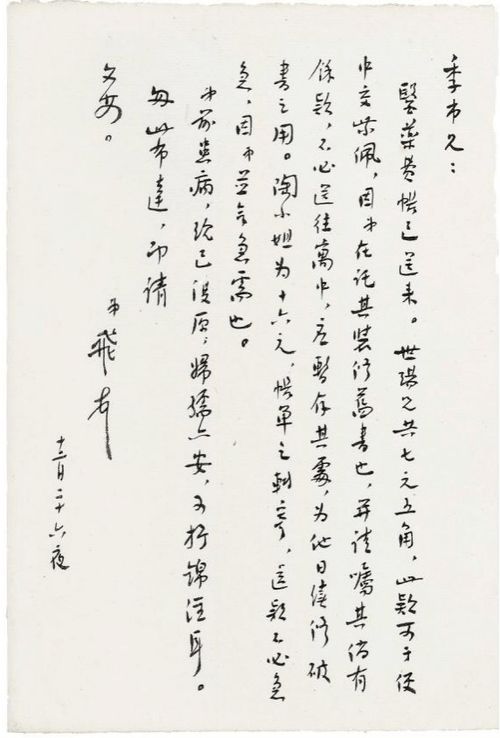 季巿兄：
醫藥費帳已送來。世瑒兄共七元五角，此款可于便
中交紫佩，因弟在託其裝修舊書也，并請囑其倘有
餘款，不必送往寓中，應暫存其處，為他日續修破
書之用。陶小姐為十六元，帳單乞轉寄，這款不必急
急，因弟並無急需也。
弟前患病，現已復原，婦孺亦安，可抒錦注耳。
匆此布達，即請
文安。
弟 飛 頓首
十二月二十六夜